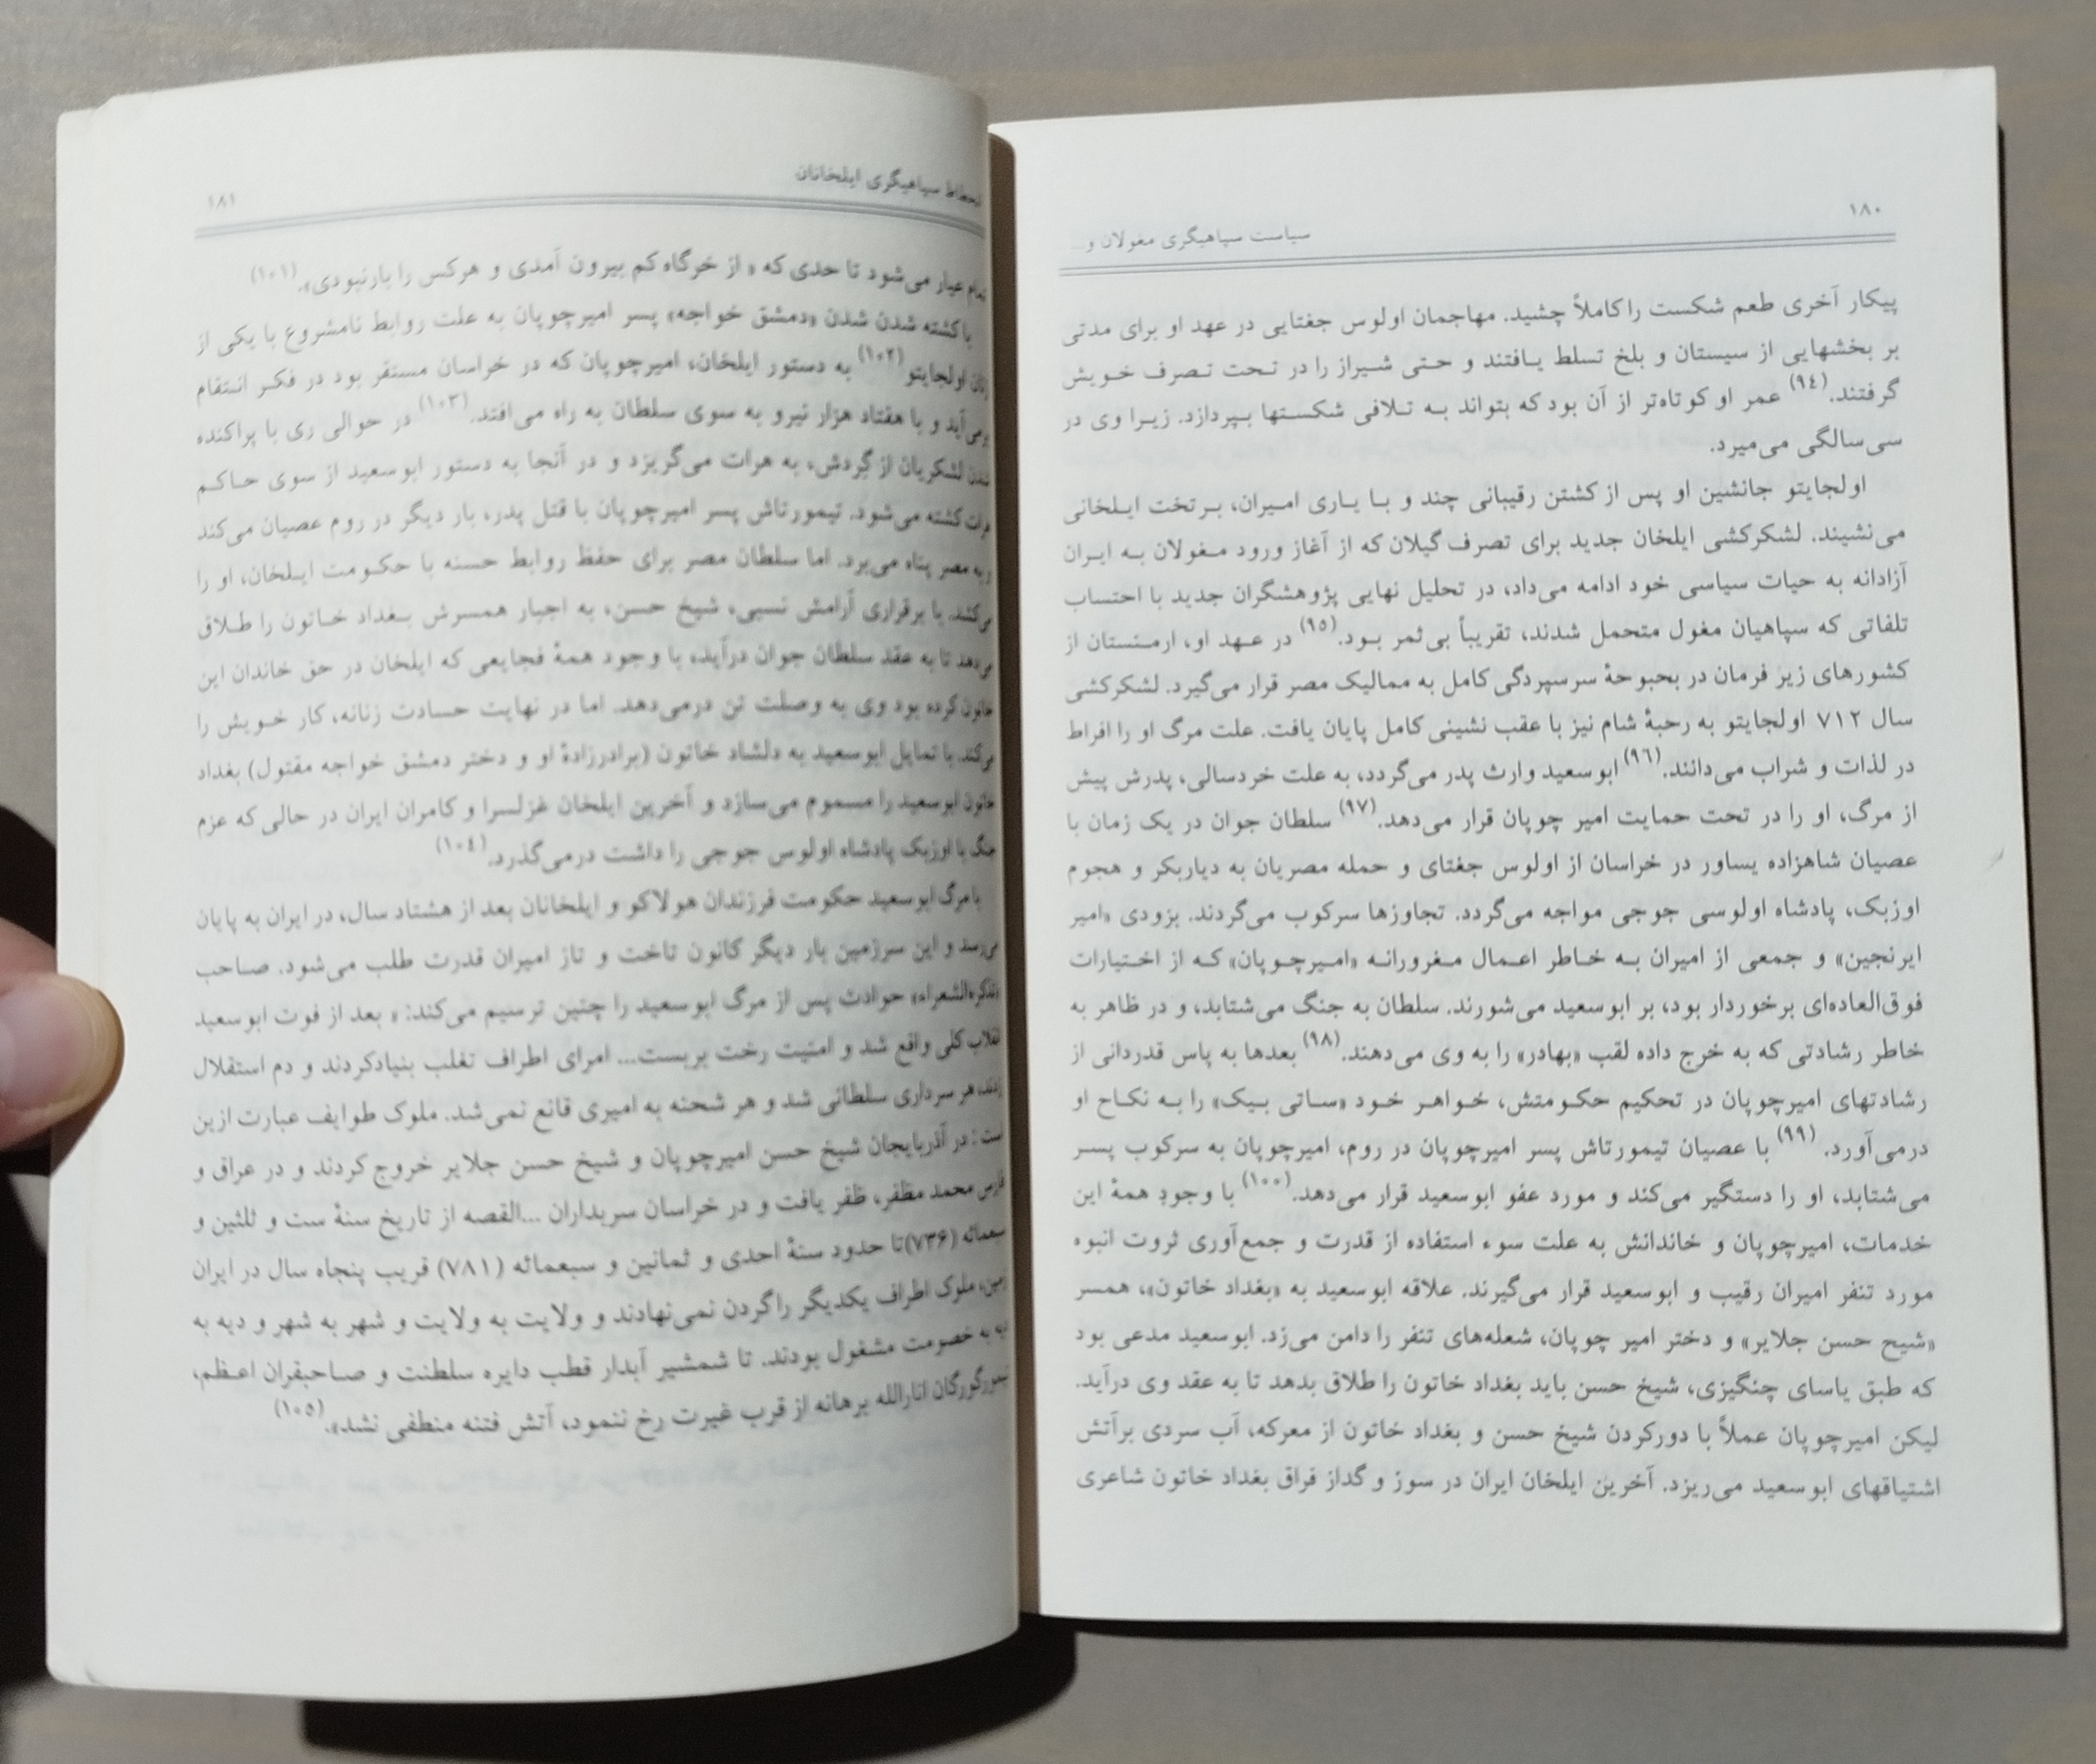 ۱۸۰
سیاست سپاهیگری مغولان و...
پیکار آخری طعم شکست را کاملاً چشید. مهاجمان اولوس جغتایی در عهد او برای مدتی
بر بخشهایی از سیستان و بلخ تسلط یافتند و حتی شیراز را در تحت تصرف خویش
گرفتند.(۹٤) عمر او کوتاه‌تر از آن بود که بتواند به تلافی شکستها بپردازد. زیرا وی در
سی‌سالگی می‌میرد.
اولجایتو جانشین او پس از کشتن رقیبانی چند و با یاری امیران، بر تخت ایلخانی
می‌نشیند. لشکرکشی ایلخان جدید برای تصرف گیلان که از آغاز ورود مغولان به ایران
آزادانه به حیات سیاسی خود ادامه می‌داد، در تحلیل نهایی پژوهشگران جدید با احتساب
تلفاتی که سپاهیان مغول متحمل شدند، تقریباً بی‌ثمر بود.(۹٥) در عهد او، ارمنستان از
کشورهای زیر فرمان در بحبوحهٔ سرسپردگی کامل به ممالیک مصر قرار می‌گیرد. لشکرکشی
سال ۷۱۲ اولجایتو به رحبهٔ شام نیز با عقب نشینی کامل پایان یافت. علت مرگ او را افراط
در لذات و شراب می‌دانند.(۹٦) ابوسعید وارث پدر می‌گردد، به علت خردسالی، پدرش پیش
از مرگ، او را در تحت حمایت امیر چوپان قرار می‌دهد.(۹۷) سلطان جوان در یک زمان با
عصیان شاهزاده یساور در خراسان از اولوس جغتای و حمله مصریان به دیاربکر و هجوم
اوزبک، پادشاه اولوسی جوجی مواجه می‌گردد. تجاوزها سرکوب می‌گردند. بزودی «امیر
ایرنجین» و جمعی از امیران به خاطر اعمال مغرورانه «امیرچوپان» که از اختیارات
فوق‌العاده‌ای برخوردار بود، بر ابوسعید می‌شورند. سلطان به جنگ می‌شتابد، و در ظاهر به
خاطر رشادتی که به خرج داده لقب «بهادر» را به وی می‌دهند.(۹۸) بعدها به پاس قدردانی از
رشادتهای امیرچوپان در تحکیم حکومتش، خواهر خود «ساتی بیک» را به نکاح او
درمی‌آورد.(۹۹) با عصیان تیمورتاش پسر امیرچوپان در روم، امیرچوپان به سرکوب پسر
می‌شتابد، او را دستگیر می‌کند و مورد عفو ابوسعید قرار می‌دهد.(۱۰۰) با وجودِ همهٔ این
خدمات، امیرچوپان و خاندانش به علت سوء استفاده از قدرت و جمع‌آوری ثروت انبوه
مورد تنفر امیران رقیب و ابوسعید قرار می‌گیرند. علاقه ابوسعید به «بغداد خاتون»، همسر
«شیخ حسن جلایر» و دختر امیر چوپان، شعله‌های تنفر را دامن می‌زد. ابوسعید مدعی بود
که طبق یاسای چنگیزی، شیخ حسن باید بغداد خاتون را طلاق بدهد تا به عقد وی درآید.
لیکن امیرچوپان عملاً با دورکردن شیخ حسن و بغداد خاتون از معرکه، آب سردی برآتش
اشتیاقهای ابوسعید می‌ریزد. آخرین ایلخان ایران در سوز و گداز فراق بغداد خاتون شاعری
سپاهیگری ایلخانان
۱۸۱
تمام عیار می‌شود تا حدی که « از خرگاه کم بیرون آمدی و هرکس را بارنبودی».(۱۰۱)
باکشته شدن شدن «دمشق خواجه» پسر امیرچوپان به علت روابط نامشروع با یکی از
زنان اولجایتو(۱۰۲) به دستور ایلخان، امیرچوپان که در خراسان مستقر بود در فکر انتقام
برمی‌آید و با هفتاد هزار نیرو به سوی سلطان به راه می‌افتد.(۱۰۳) در حوالی ری با پراکنده
شدن لشکریان از گِردش، به هرات می‌گریزد و در آنجا به دستور ابوسعید از سوی حاکم
هرات کشته می‌شود. تیمورتاش پسر امیرچوپان با قتل پدر، بار دیگر در روم عصیان می‌کند
و به مصر پناه می‌برد. اما سلطان مصر برای حفظ روابط حسنه با حکومت ایلخان، او را
می‌کشد. با برقراری آرامش نسبی، شیخ حسن، به اجبار همسرش بغداد خاتون را طلاق
می‌دهد تا به عقد سلطان جوان درآید، با وجود همهٔ فجایعی که ایلخان در حق خاندان این
خاتون کرده بود وی به وصلت تن درمی‌دهد. اما در نهایت حسادت زنانه، کار خویش را
می‌کند. با تمایل ابوسعید به دلشاد خاتون (برادرزادهٔ او و دختر دمشق خواجه مقتول) بغداد
خاتون ابوسعید را مسموم می‌سازد و آخرین ایلخان غزلسرا و کامران ایران در حالی که عزم
جنگ با اوزبک پادشاه اولوس جوجی را داشت درمی‌گذرد.(۱۰٤)
بامرگ ابوسعید حکومت فرزندان هولاکو و ایلخانان بعد از هشتاد سال، در ایران به پایان
می‌رسد و این سرزمین بار دیگر کانون تاخت و تاز امیران قدرت طلب می‌شود. صاحب
«تذکرةالشعراء» حوادث پس از مرگ ابوسعید را چنین ترسیم می‌کند: « بعد از فوت ابوسعید
انقلاب کلی واقع شد و امنیت رخت بربست... امرای اطراف تغلب بنیادکردند و دم استقلال
زدند، هر سرداری سلطانی شد و هر شحنه به امیری قانع نمی‌شد. ملوک طوایف عبارت ازین
است : در آذربایجان شیخ حسن امیرچوپان و شیخ حسن جلایر خروج کردند و در عراق و
فارس محمد مظفر، ظفر یافت و در خراسان سربداران ...القصه از تاریخ سنهٔ ست و ثلثین و
سبعمائه (۷۳۶)تا حدود سنهٔ احدی و ثمانین و سبعمائه (۷۸۱) قریب پنجاه سال در ایران
زمین، ملوک اطراف یکدیگر راگردن نمی‌نهادند و ولایت به ولایت و شهر به شهر و دیه به
دیه به خصومت مشغول بودند. تا شمشیر آبدار قطب دایره سلطنت و صاحبقران اعظم،
تیمورگورگان انارالله برهانه از قرب غیرت رخ ننمود، آتش فتنه منطفی نشد».(۱۰٥)